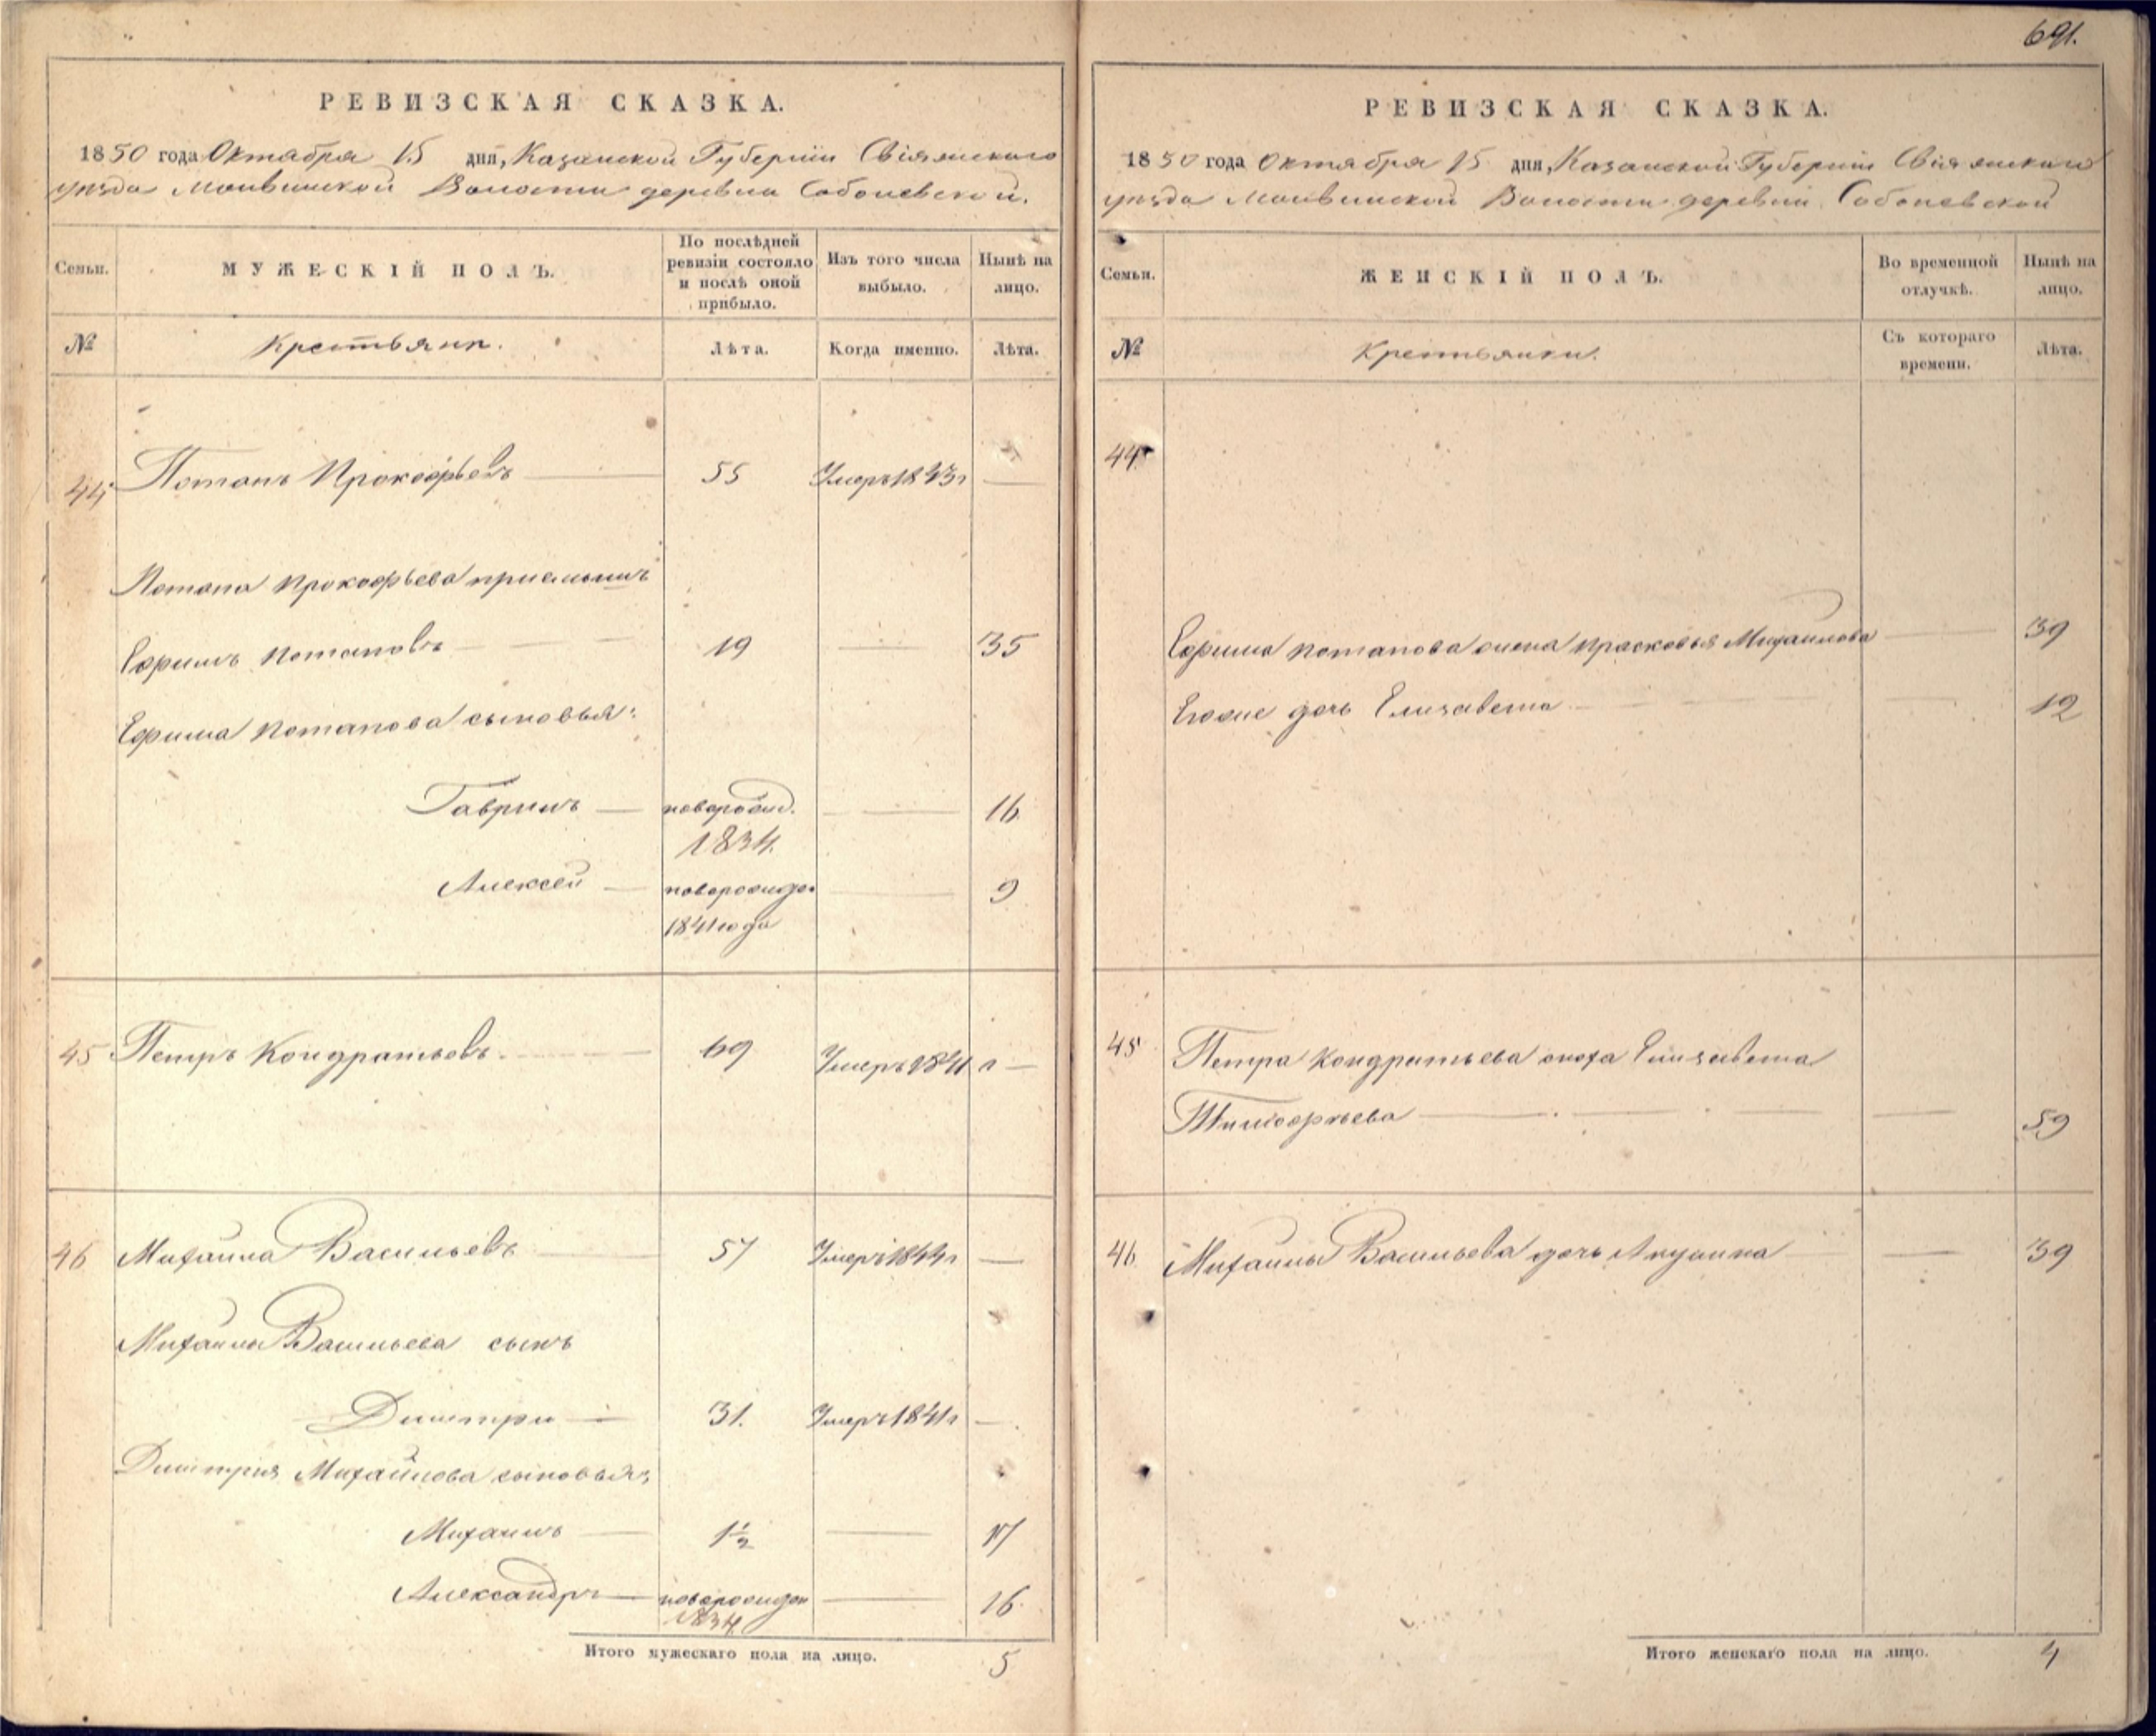 691.
РЕВИЗСКАЯ СКАЗКА.
1850 года Октября 15 дня, Казанской Губерніи Свіяжскаго
уѣзда Волости деревни Соболевской.
Семьи.
МУЖЕСКІЙ ПОЛЪ.
По послѣдней ревизіи состояло и послѣ оной прибыло.
Изъ того числа выбыло.
Нынѣ на лицо.
№
Крестьяне.
Лѣта.
Когда именно.
Лѣта.
44 Потапъ Прокофьевъ 55 Умеръ 1843 г —
Потапа Прокофьева приемышъ
Ефимъ Потаповъ 19 — 35
Ефима Потапова сыновья:
Гаврилъ — новорожд. — 16
1834.
Алексей — новорожден — 9
1841 года
45 Петръ Кондратьевъ. 69 Умеръ 1841 г —
46 Михайла Васильевъ 57 Умеръ 1844 г —
Михайлы Васильева сынъ
Дмитри — 31. Умеръ 1841 г —
Дмитрия Михайлова сыновья:
Михаилъ — 1½ — 17
Александръ — новорожден — 16.
1834
Итого мужескаго пола на лицо. 5
РЕВИЗСКАЯ СКАЗКА.
1850 года Октября 15 дня, Казанской Губерніи Свіяжскаго
уѣзда Волости деревни Соболевской
Семьи.
ЖЕНСКІЙ ПОЛЪ.
Во временной отлучкѣ.
Нынѣ на лицо.
№
Крестьянки.
Съ котораго времени.
Лѣта.
44
Ефима Потапова жена Прасковья Михайлова — 39
Егоже дочь Елизавета — 12
45 Петра Кондратьева сноха Елизавета
Тимофеева — 59
46 Михайлы Васильева дочь Акулина — 39
Итого женскаго пола на лицо. 4